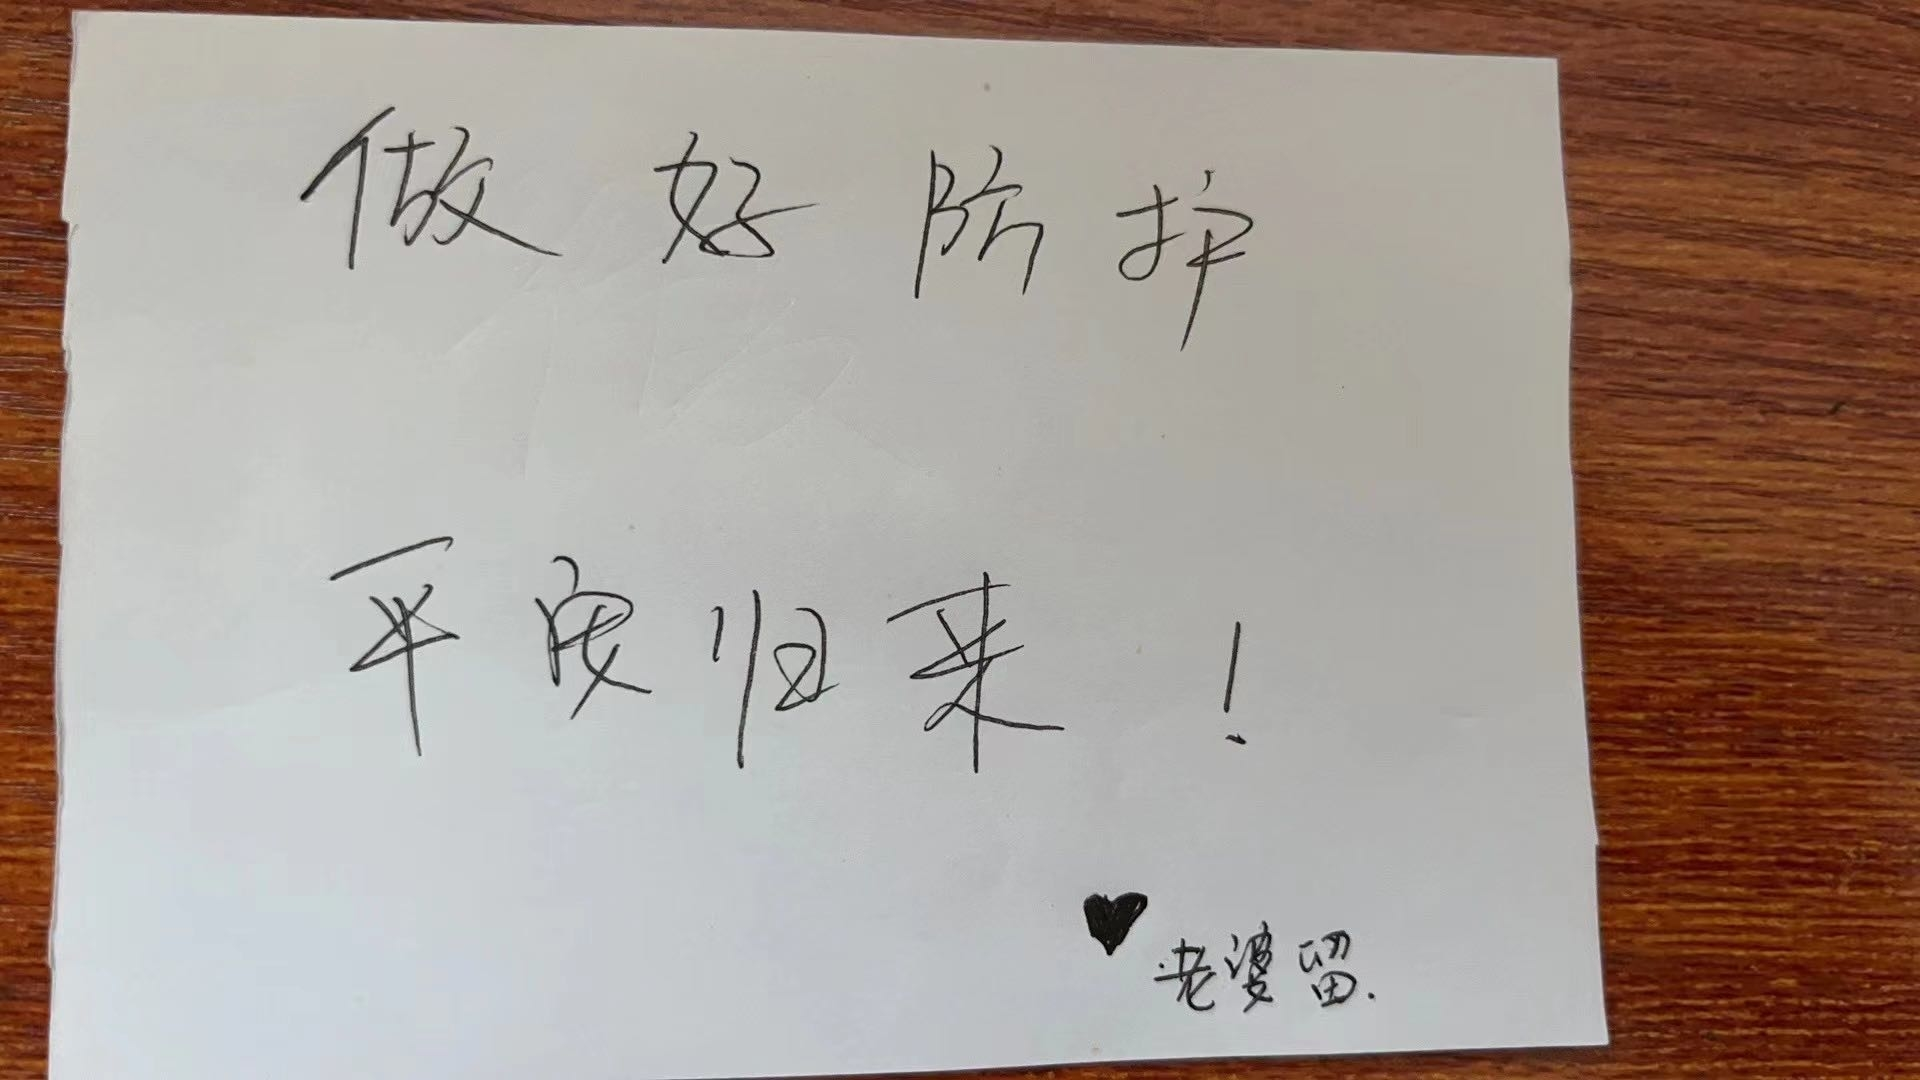 做好防护
平安归来!
♥老婆留.